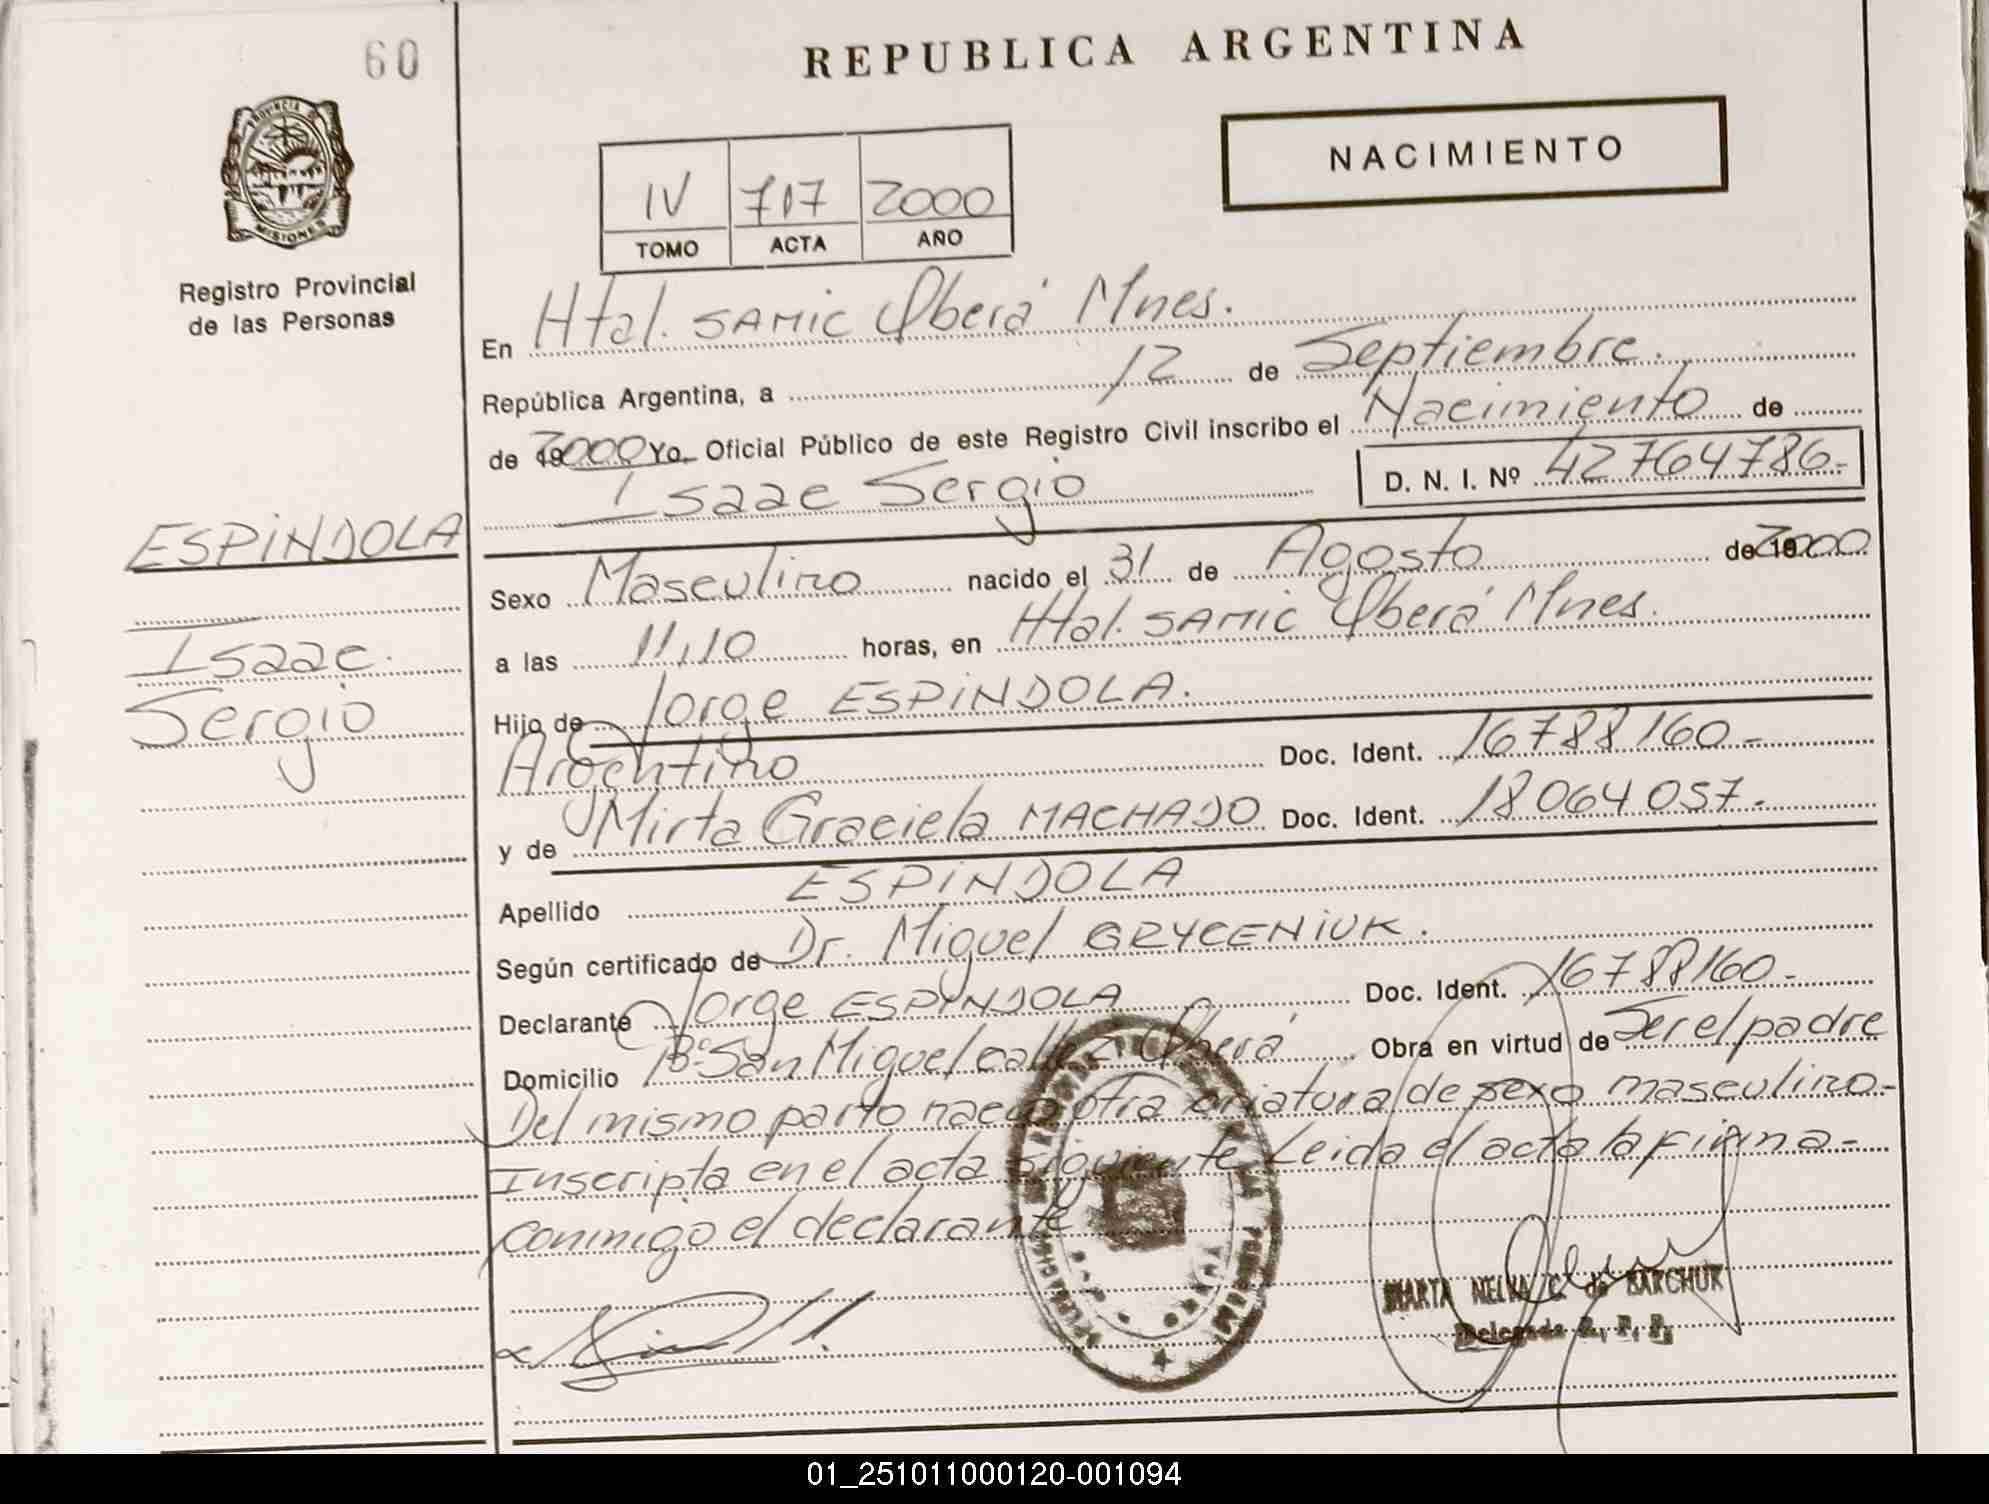 60
REPUBLICA ARGENTINA
PROVINCIA
MISIONES
Registro Provincial
de las Personas
NACIMIENTO
IV 717 2000
TOMO ACTA AÑO
En Htal. SAMIC Oberá Mnes.
República Argentina, a 12 de Septiembre.
de 2000 Yo, Oficial Público de este Registro Civil inscribo el Nacimiento de
Isaac Sergio D. N. I. Nº 42764786.-
ESPINDOLA
Isaac.
Sergio
Sexo Masculino nacido el 31 de Agosto de 2000
a las 11,10 horas, en Htal. SAMIC Oberá Mnes.
Hijo de Jorge ESPINDOLA.
Argentino Doc. Ident. 16788160-
y de Mirta Graciela MACHADO Doc. Ident. 18064057.-
Apellido ESPINDOLA
Según certificado de Dr. Miguel GRYCENIUK.
Declarante Jorge ESPINDOLA Doc. Ident. 16788160.-
Domicilio Bº San Miguel calle Oberá Obra en virtud de Ser el padre
Del mismo parto nació otra criatura de sexo masculino.-
Inscripta en el acta siguiente Leida el acta la firma-
conmigo el declarante
MARTA NELIDA C. de BARCHUK
Delegada R. P. P.
01_251011000120-001094